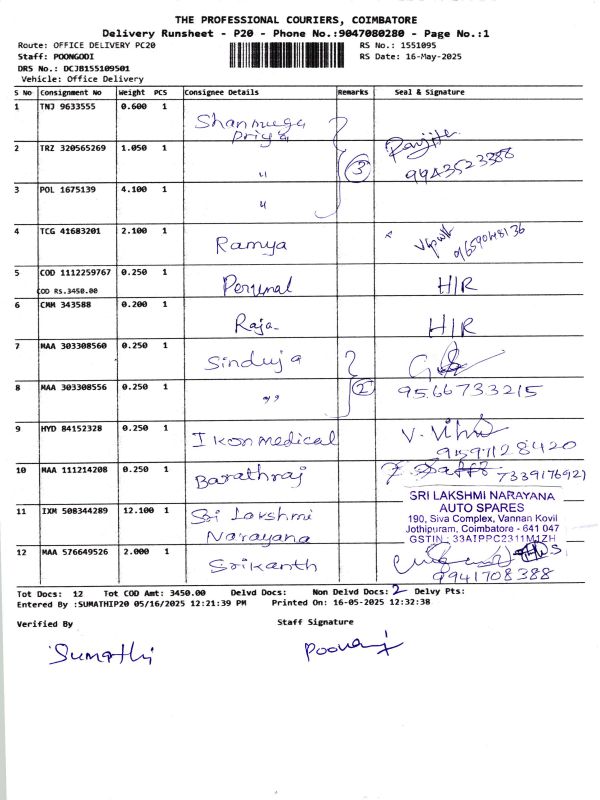 THE PROFESSIONAL COURIERS, COIMBATORE
Delivery Runsheet - P20 - Phone No.:9047080280 - Page No.:1
Route: OFFICE DELIVERY PC20 RS No.: 1551095
Staff: POONGODI RS Date: 16-May-2025
DRS No.: DCJB155109501
Vehicle: Office Delivery
S No Consignment No Weight PCS Consignee Details Remarks Seal & Signature
1 TNJ 9633555 0.600 1 Shanmuga
Priya
2 TRZ 320565269 1.050 1 " 3 9943523388
3 POL 1675139 4.100 1 "
4 TCG 41683201 2.100 1 Ramya
5 COD 1112259767 0.250 1 Perumal H/R
COD Rs.3450.00
6 CMM 343588 0.200 1 Raja H/R
7 MAA 303308560 0.250 1 Sinduja
8 MAA 303308556 0.250 1 " 2 9566733215
9 HYD 84152328 0.250 1 Ikon medical
10 MAA 111214208 0.250 1 Barathraj 7339176921
11 IXM 508344289 12.100 1 Sri Lakshmi
Narayana
SRI LAKSHMI NARAYANA
AUTO SPARES
190, Siva Complex, Vannan Kovil
Jothipuram, Coimbatore - 641 047
GSTIN : 33AIPPC2311M1ZH
12 MAA 576649526 2.000 1 Srikanth 9941708388
Tot Docs: 12 Tot COD Amt: 3450.00 Delvd Docs: Non Delvd Docs: 2 Delvy Pts:
Entered By :SUMATHIP20 05/16/2025 12:21:39 PM Printed On: 16-05-2025 12:32:38
Verified By Staff Signature
Sumathi